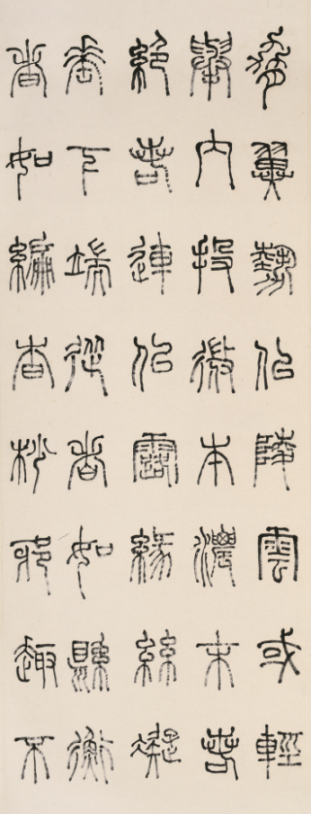 脅翼勢似陵雲或輕
舉內投微本濃末若
絕若連似露緣絲凝
垂下端從者如懸衡
者如編杳杪邪趣不